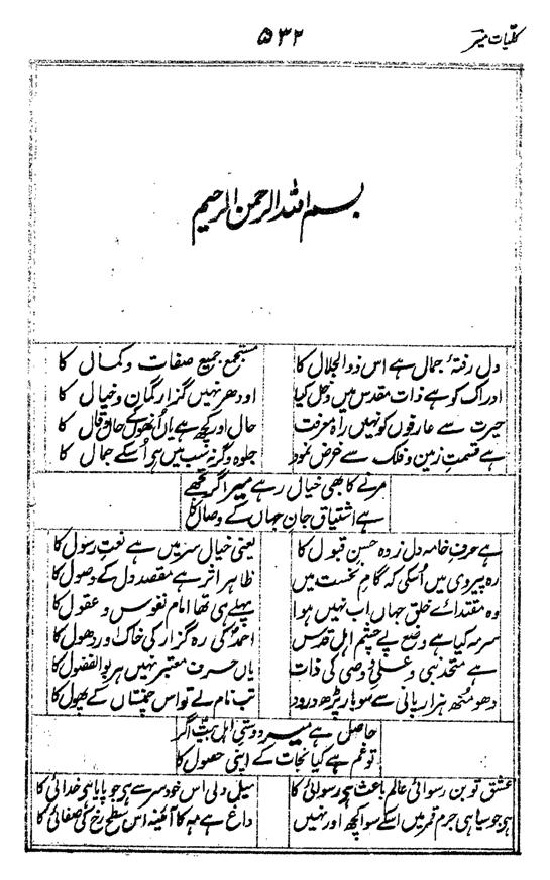 کلیات میر
۵۳۲
بسم اللہ الرحمن الرحیم
دل رفتۂ جمال ہے اس ذوالجلال کا
مستجمع جمیع صفات و کمال کا
ادراک کو ہے ذات مقدس میں دخل کیا
اودھر نہیں گزار گمان و خیال کا
حیرت سے عارفوں کو نہیں راہ معرفت
حال اور کچھ ہے یاں انھوں کے حال و قال کا
ہے قسمت زمین و فلک سے غرض نمود
جلوہ وگرنہ سب میں ہے اسکے جمال کا
مرنے کا بھی خیال رہے میر اگر تجھے
ہے اشتیاق جان جہاں کے وصال کا
ہے حرف خامہ دل زدہ حسن قبول کا
یعنی خیال سر میں ہے نعت رسول کا
رہ پیروی میں اسکی کہ گام نخست میں
ظاہر اثر ہے مقصد دل کے وصول کا
وہ مقتدائے خلق جہاں اب نہیں ہوا
پہلے ہی تھا امام نفوس و عقول کا
سرمہ کیا ہے وضع پے چشم اہل قدس
احمد کی رہ گزار کی خاک اور دھول کا
ہے متحد نبی و علی و وصی کی ذات
یاں حرف معتبر نہیں ہر بوالفضول کا
دھو منھ ہزار پانی سے سو بار پڑھ درود
تب نام لے تو اس چمنستاں کے پھول کا
حاصل ہے میر دوستی اہل بیت اگر
تو غم ہے کیا نجات کے اپنی حصول کا
عشق تو بن رسوائی عالم باعث ہے رسوائی کا
میل دلی اس خود سر سے ہے جو پایا ہے خدائی کا
ہے جو سیاہی جرم قمر میں اسکے سوا کچھ اور نہیں
داغ ہے مہ کا آئینہ اس سطح رخ کی صفائی کا